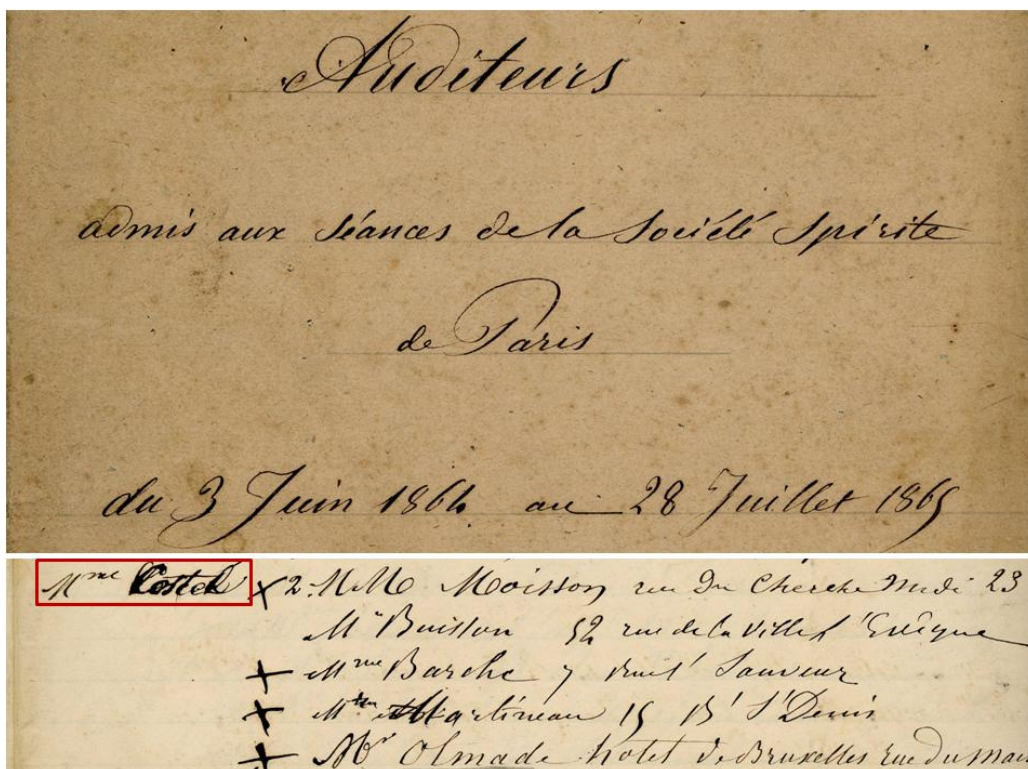 Auditeurs
admis aux séances de la Société Spirite
de Paris
du 3 Juin 1864 au 28 Juillet 1865
Mme Costel × 2. MM Moisson rue du Cherche Midi 23
Mr Buisson 52 rue de la Ville l'Evêque
× Mme Barche 7 Sauveur
× Martineau 15 Bd St Denis
× Mr Olmade hotel de Bruxelles rue du Mail